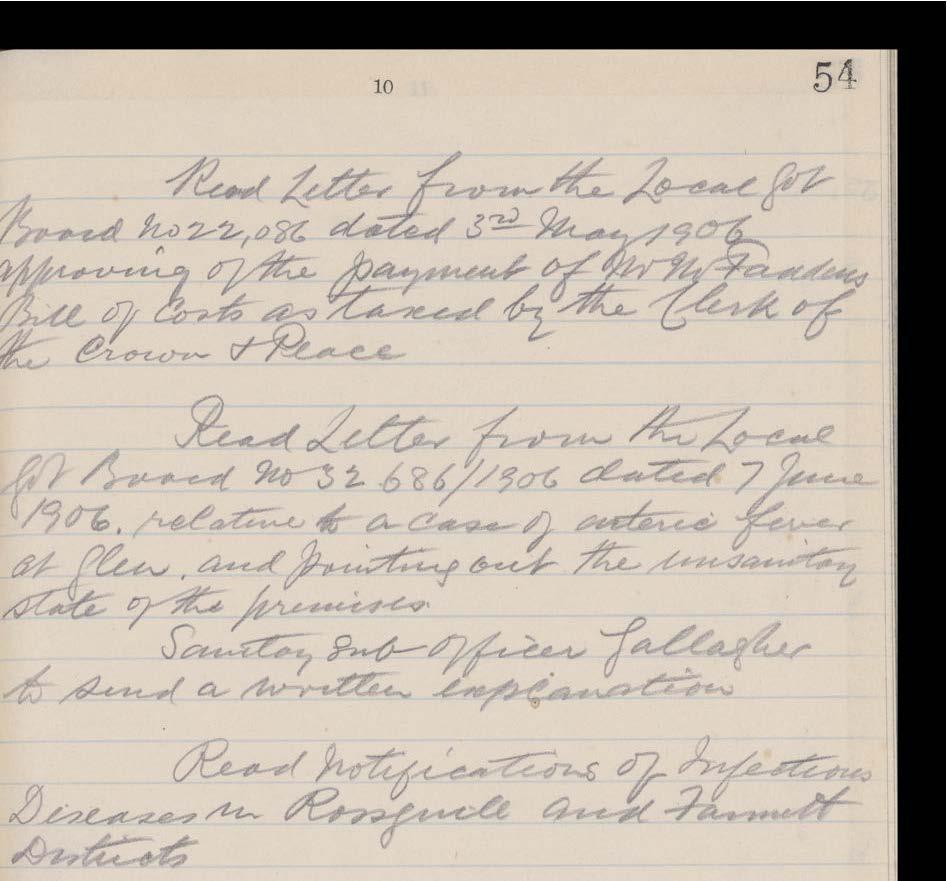 10
54
Read Letter from the Local Govt
Board No 22,086 dated 3rd May 1906
approving of the payment of Mr McFaddens
Bill of Costs as taxed by the Clerk of
the Crown & Peace
Read Letter from the Local
Govt Board No 32.686/1906 dated 7 June
1906. relative to a case of enteric fever
at Glen. and pointing out the unsanitary
state of the premises.
Sanitary Sub Officer Gallagher
to send a written explanation
Read Notifications of Infectious
Diseases in Rossguill and Fannett
Districts